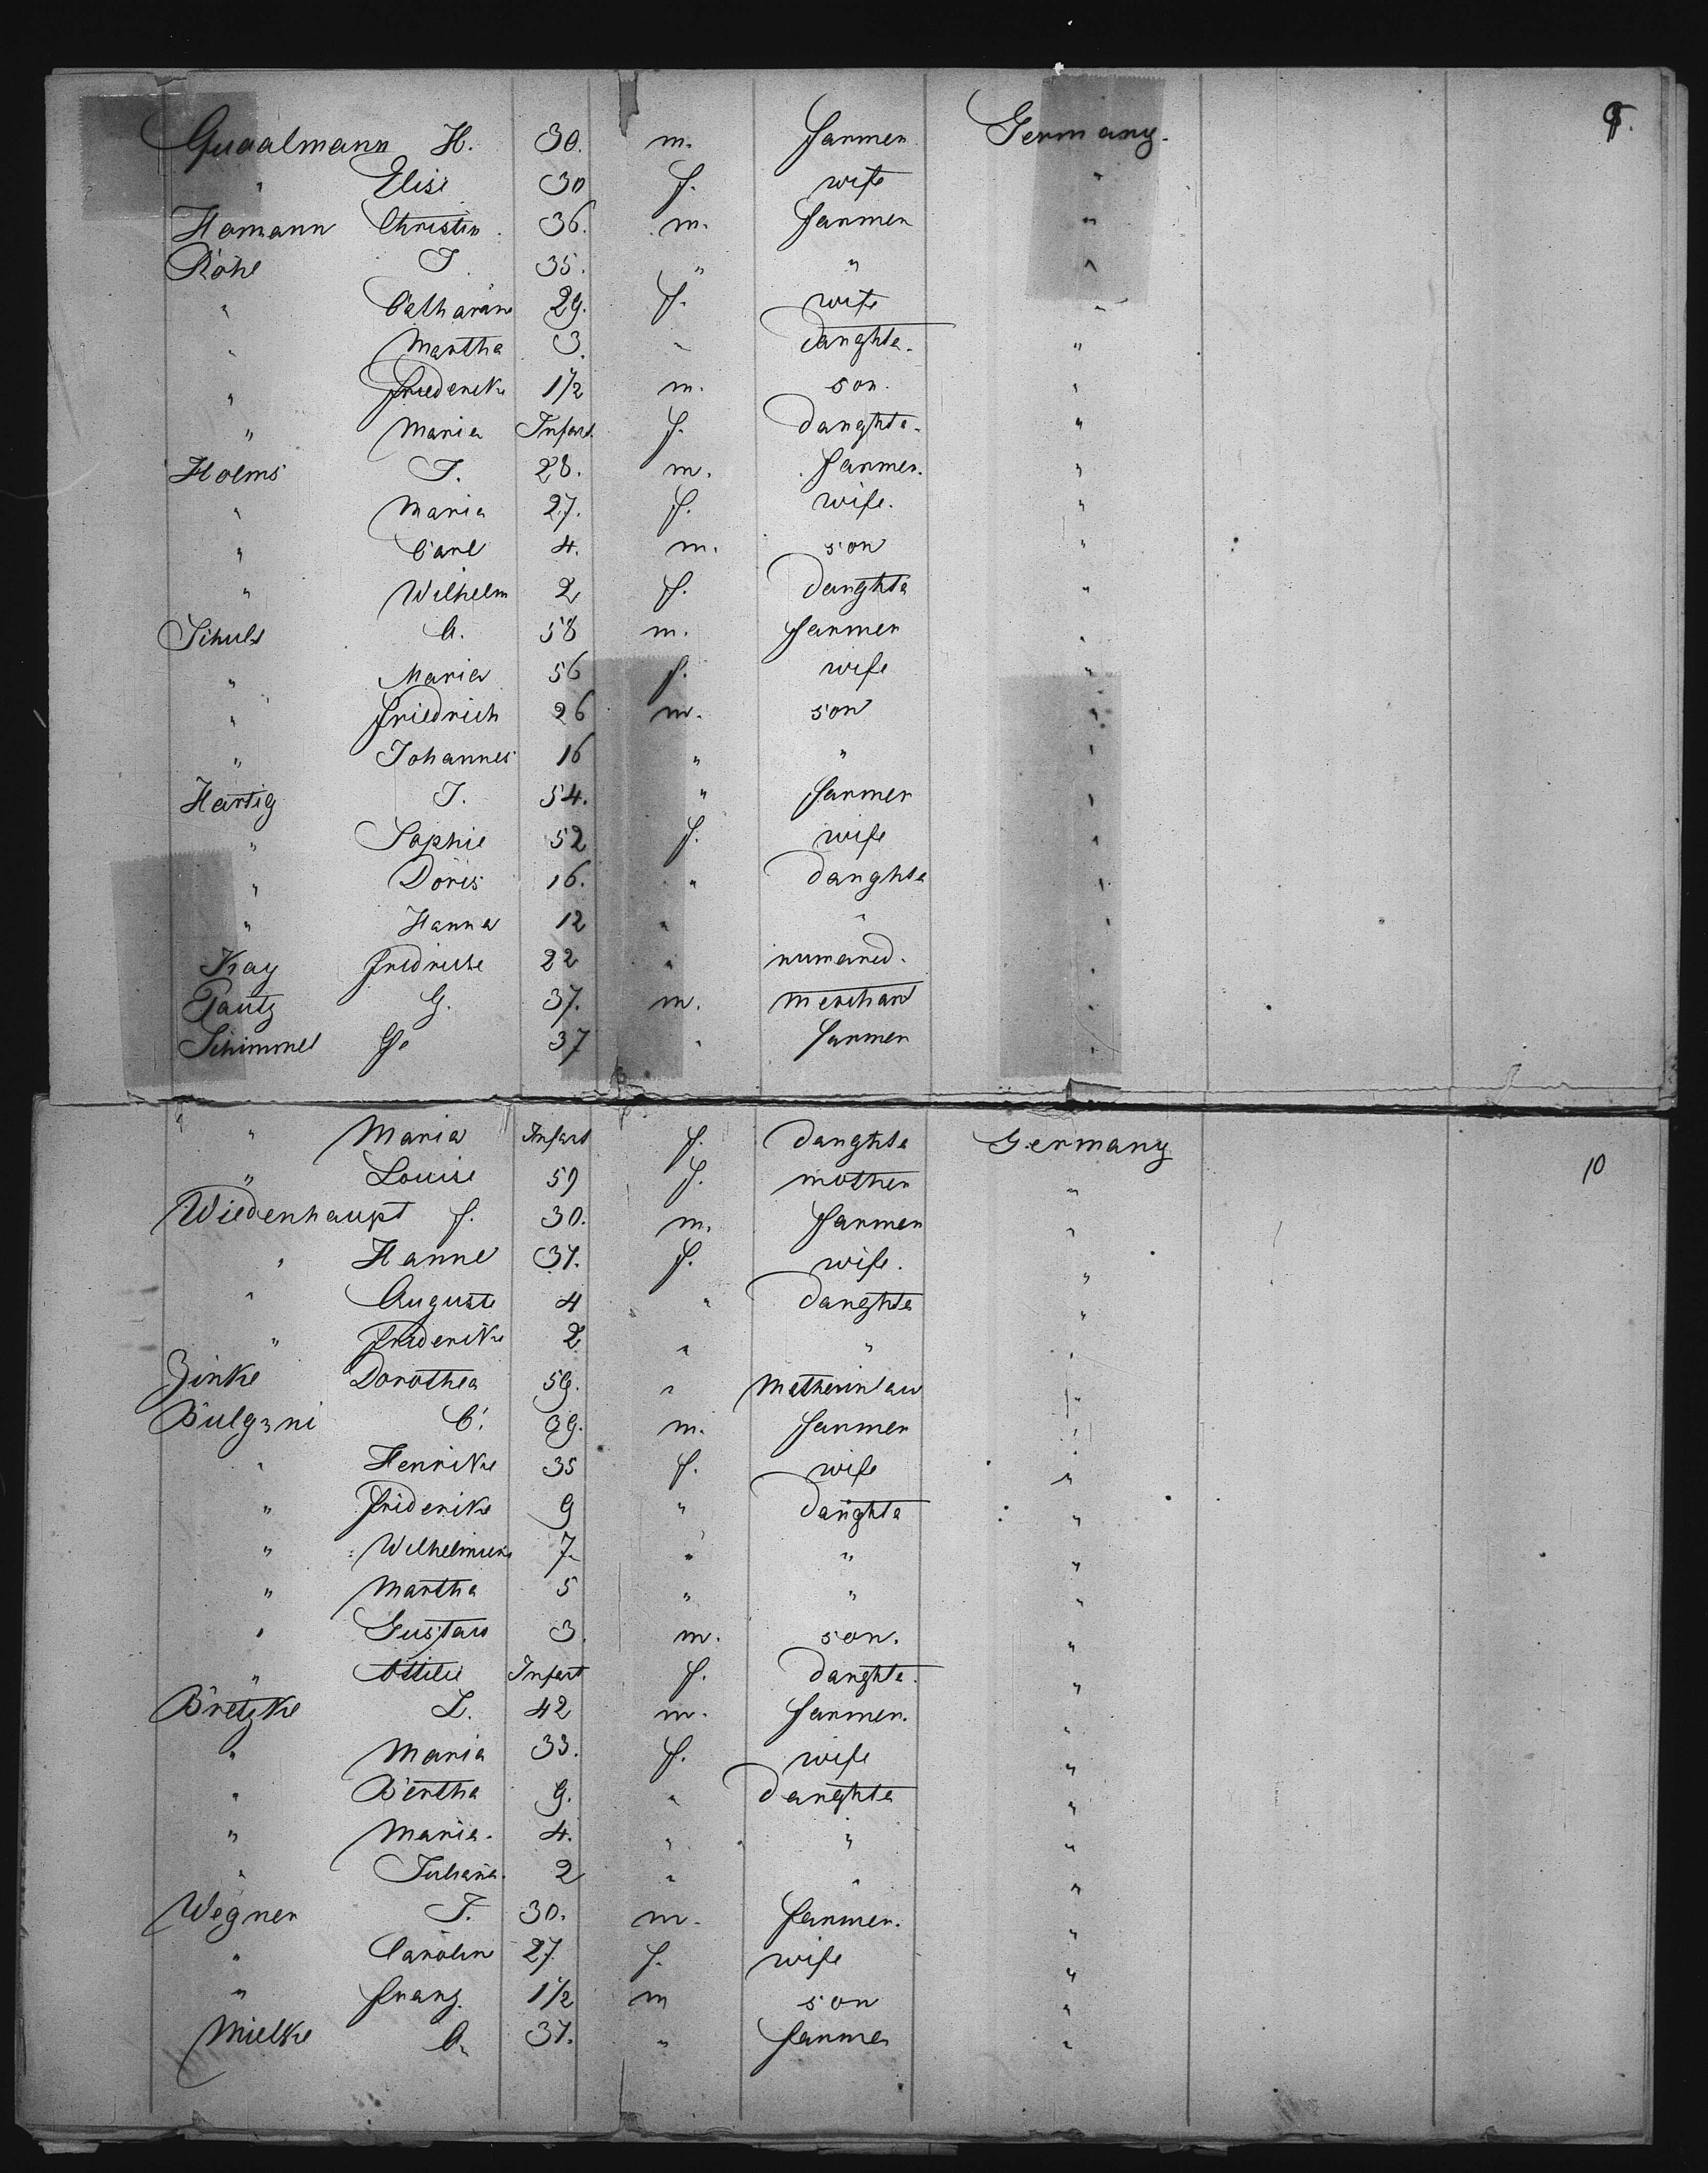 Guaalmann H. 30. m. farmer Germany. 9.
" Elise 30 f. wife "
Hamann Christin. 36. m. farmer "
Röhl J. 35. " " "
" Catharine 29. f. wife "
" Martha 3. " daughte. "
" Friedericke 1 1/2 m. son. "
" Maria Infant. f. daughte. "
Holms J. 28. m. farmer. "
" Maria 27. f. wife. "
" Carl 4. m. son "
" Wilhelm 2 f. daughte "
Schult C. 58 m. farmer "
" Maria 56 f. wife "
" Friedrich 26 m. son "
" Johannes 16 " " "
Hartig J. 54. " farmer "
" Sophie 52 f. wife "
" Doris 16. " daughte "
" Hanna 12 " " "
Kay 22 " "
G. 37. m. merchant "
Schimmel 37 " farmer "
" Maria Infant f. daughte Germany
" Louise 59 f. mother " 10
Wiedenhaupt f. 30. m. farmer "
" Hanne 31. f. wife. "
" Auguste 4 " daughte "
" Friderike 2 " " "
Zinke Dorothea 59. " Motherinlaw "
C. 39. m. farmer "
" Henrike 35 f. wife "
" Friderike 9 " daughte "
" Wilhelmine 7. " " "
" Martha 5 " " "
" Gustav 3. m. son. "
" Ottilie Infant f. daughte. "
Bretzke L. 42 m. farmer. "
" Maria 33. f. wife "
" Bertha 9. " daughte "
" Maria. 4. " " "
" Juliana. 2 " " "
Wegner J. 30. m. farmer. "
" Carolin 27 f. wife "
" Franz. 1 1/2 m son "
Mielke 31. " farmer "